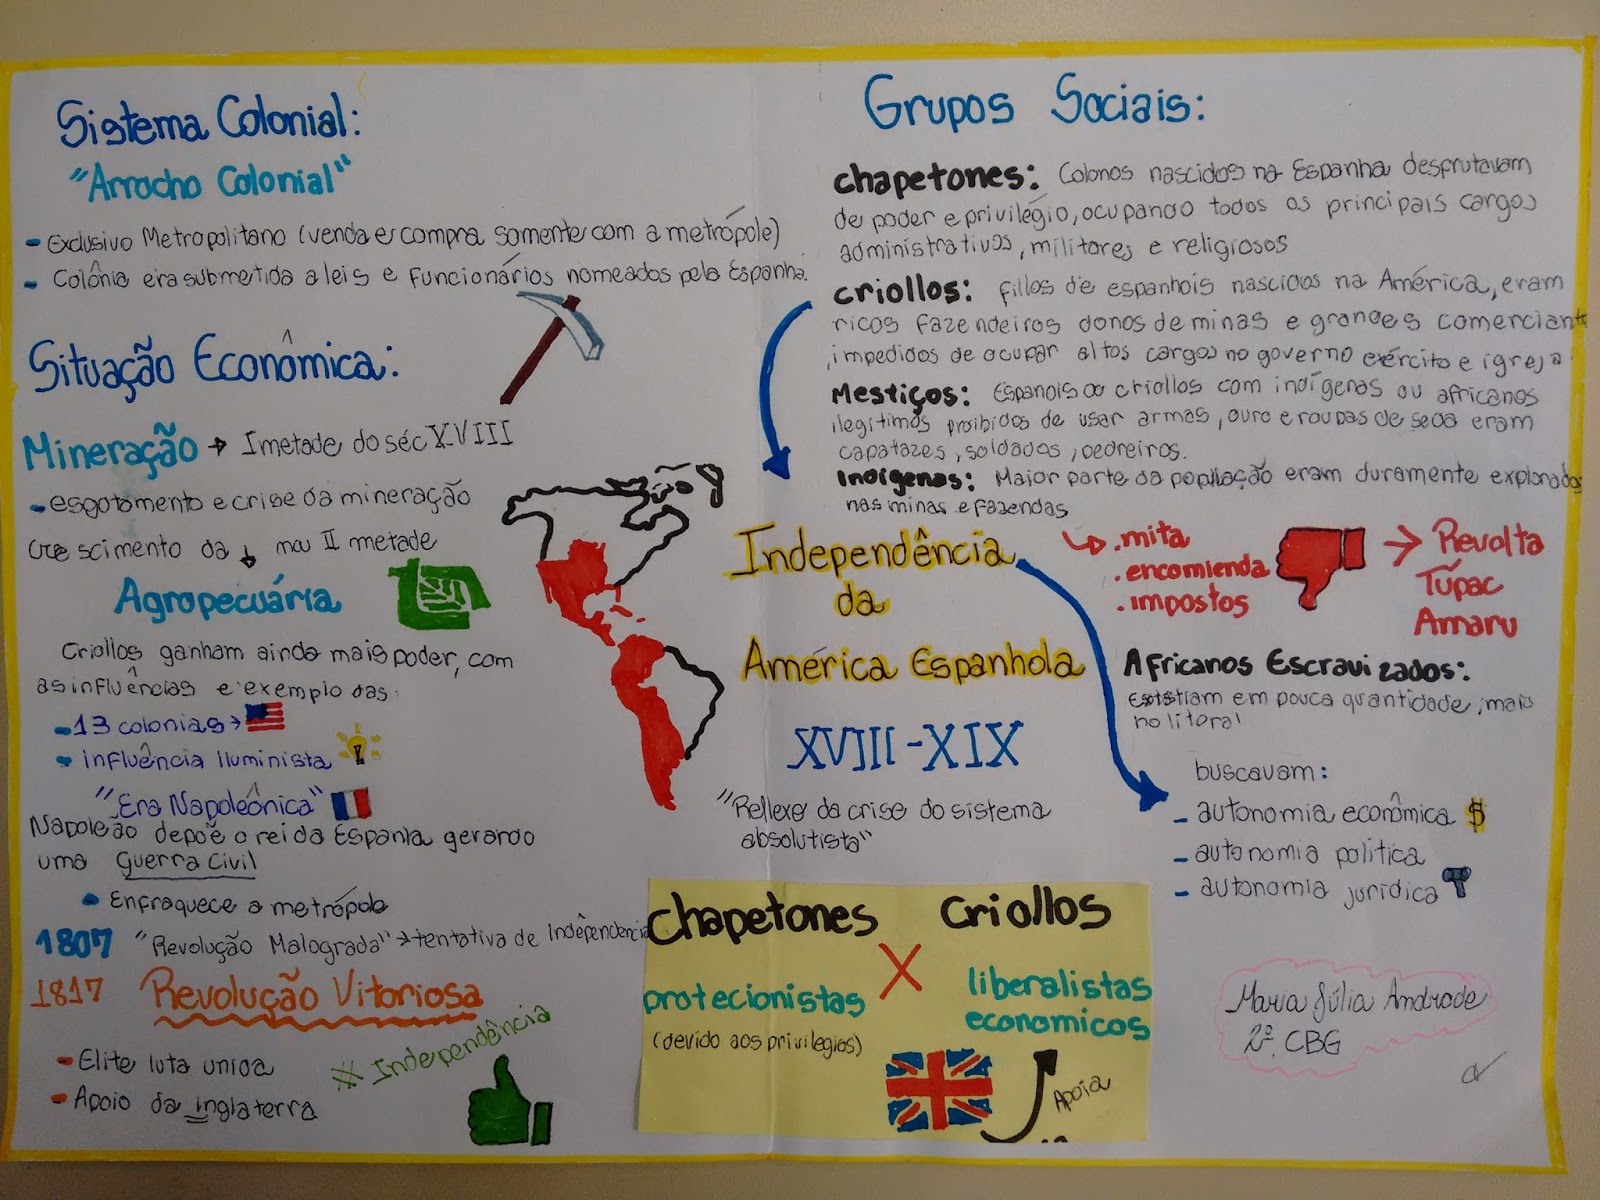 Sistema Colonial:
"Arrocho Colonial"
- Exclusivo Metropolitano (venda e compra somente com a metrópole)
- Colônia era submetida a leis e funcionários nomeados pela Espanha.
Situação Econômica:
Mineração → I metade do séc XVIII
- esgotamento e crise da mineração
crescimento da ↓ na II metade
Agropecuária
Criollos ganham ainda mais poder, com
as influências e exemplo das:
- 13 colonias →
• influência Iluminista
"Era Napoleônica"
Napoleão depoẽ o rei da Espanha gerando
uma Guerra Civil
• Enfraquece a metrópole
1807 "Revolução Malograda" → tentativa de Indêpendencia
1817 Revolução Vitoriosa
- Elite luta unica
- Apoio da inglaterra
Independência
Independência
da
América Espanhola
XVIII-XIX
"Reflexo da crise do sistema
absolutista"
Chapetones X Criollos
protecionistas
(devido aos privilegios)
liberalistas
economicos
Apoia
Grupos Sociais:
chapetones: Colonos nascidos na Espanha desprutavam
de poder e privilégio, ocupando todos os principais cargos
administrativos, militares e religiosos
criollos: fillos de espanhois nascidos na América, eram
ricos fazendeiros donos de minas e grandes comerciante
, impedidos de ocupar altos cargos no governo exército e igreja
Mestiços: Espanois ou criollos com indígenas ou africanos
ilegítimos proibidos de usar armas, ouro e roupas de seda eram
capatazes, soldados, pedreiros.
Indígenas: Maior parte da população eram duramente explorados
nas minas e fazendas
.mita
.encomienda
.impostos
→ Revolta
Túpac
Amaru
Africanos Escravizados:
Existiam em pouca quantidade, mais
no litoral
buscavam:
- autonomia econômica $
- autonomia política
- autonomia jurídica
Maria Júlia Andrade
2º. CBG